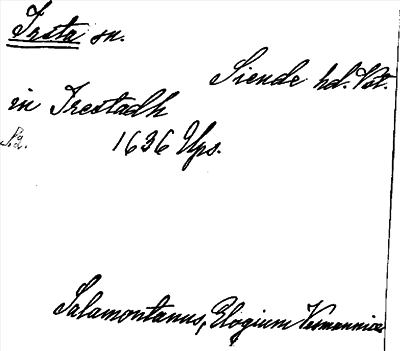 Irsta sn.
Siende hd. Vstl.
in Irestadh
1636 Ups.
Salamontanus, Elogium Vesmanniæ